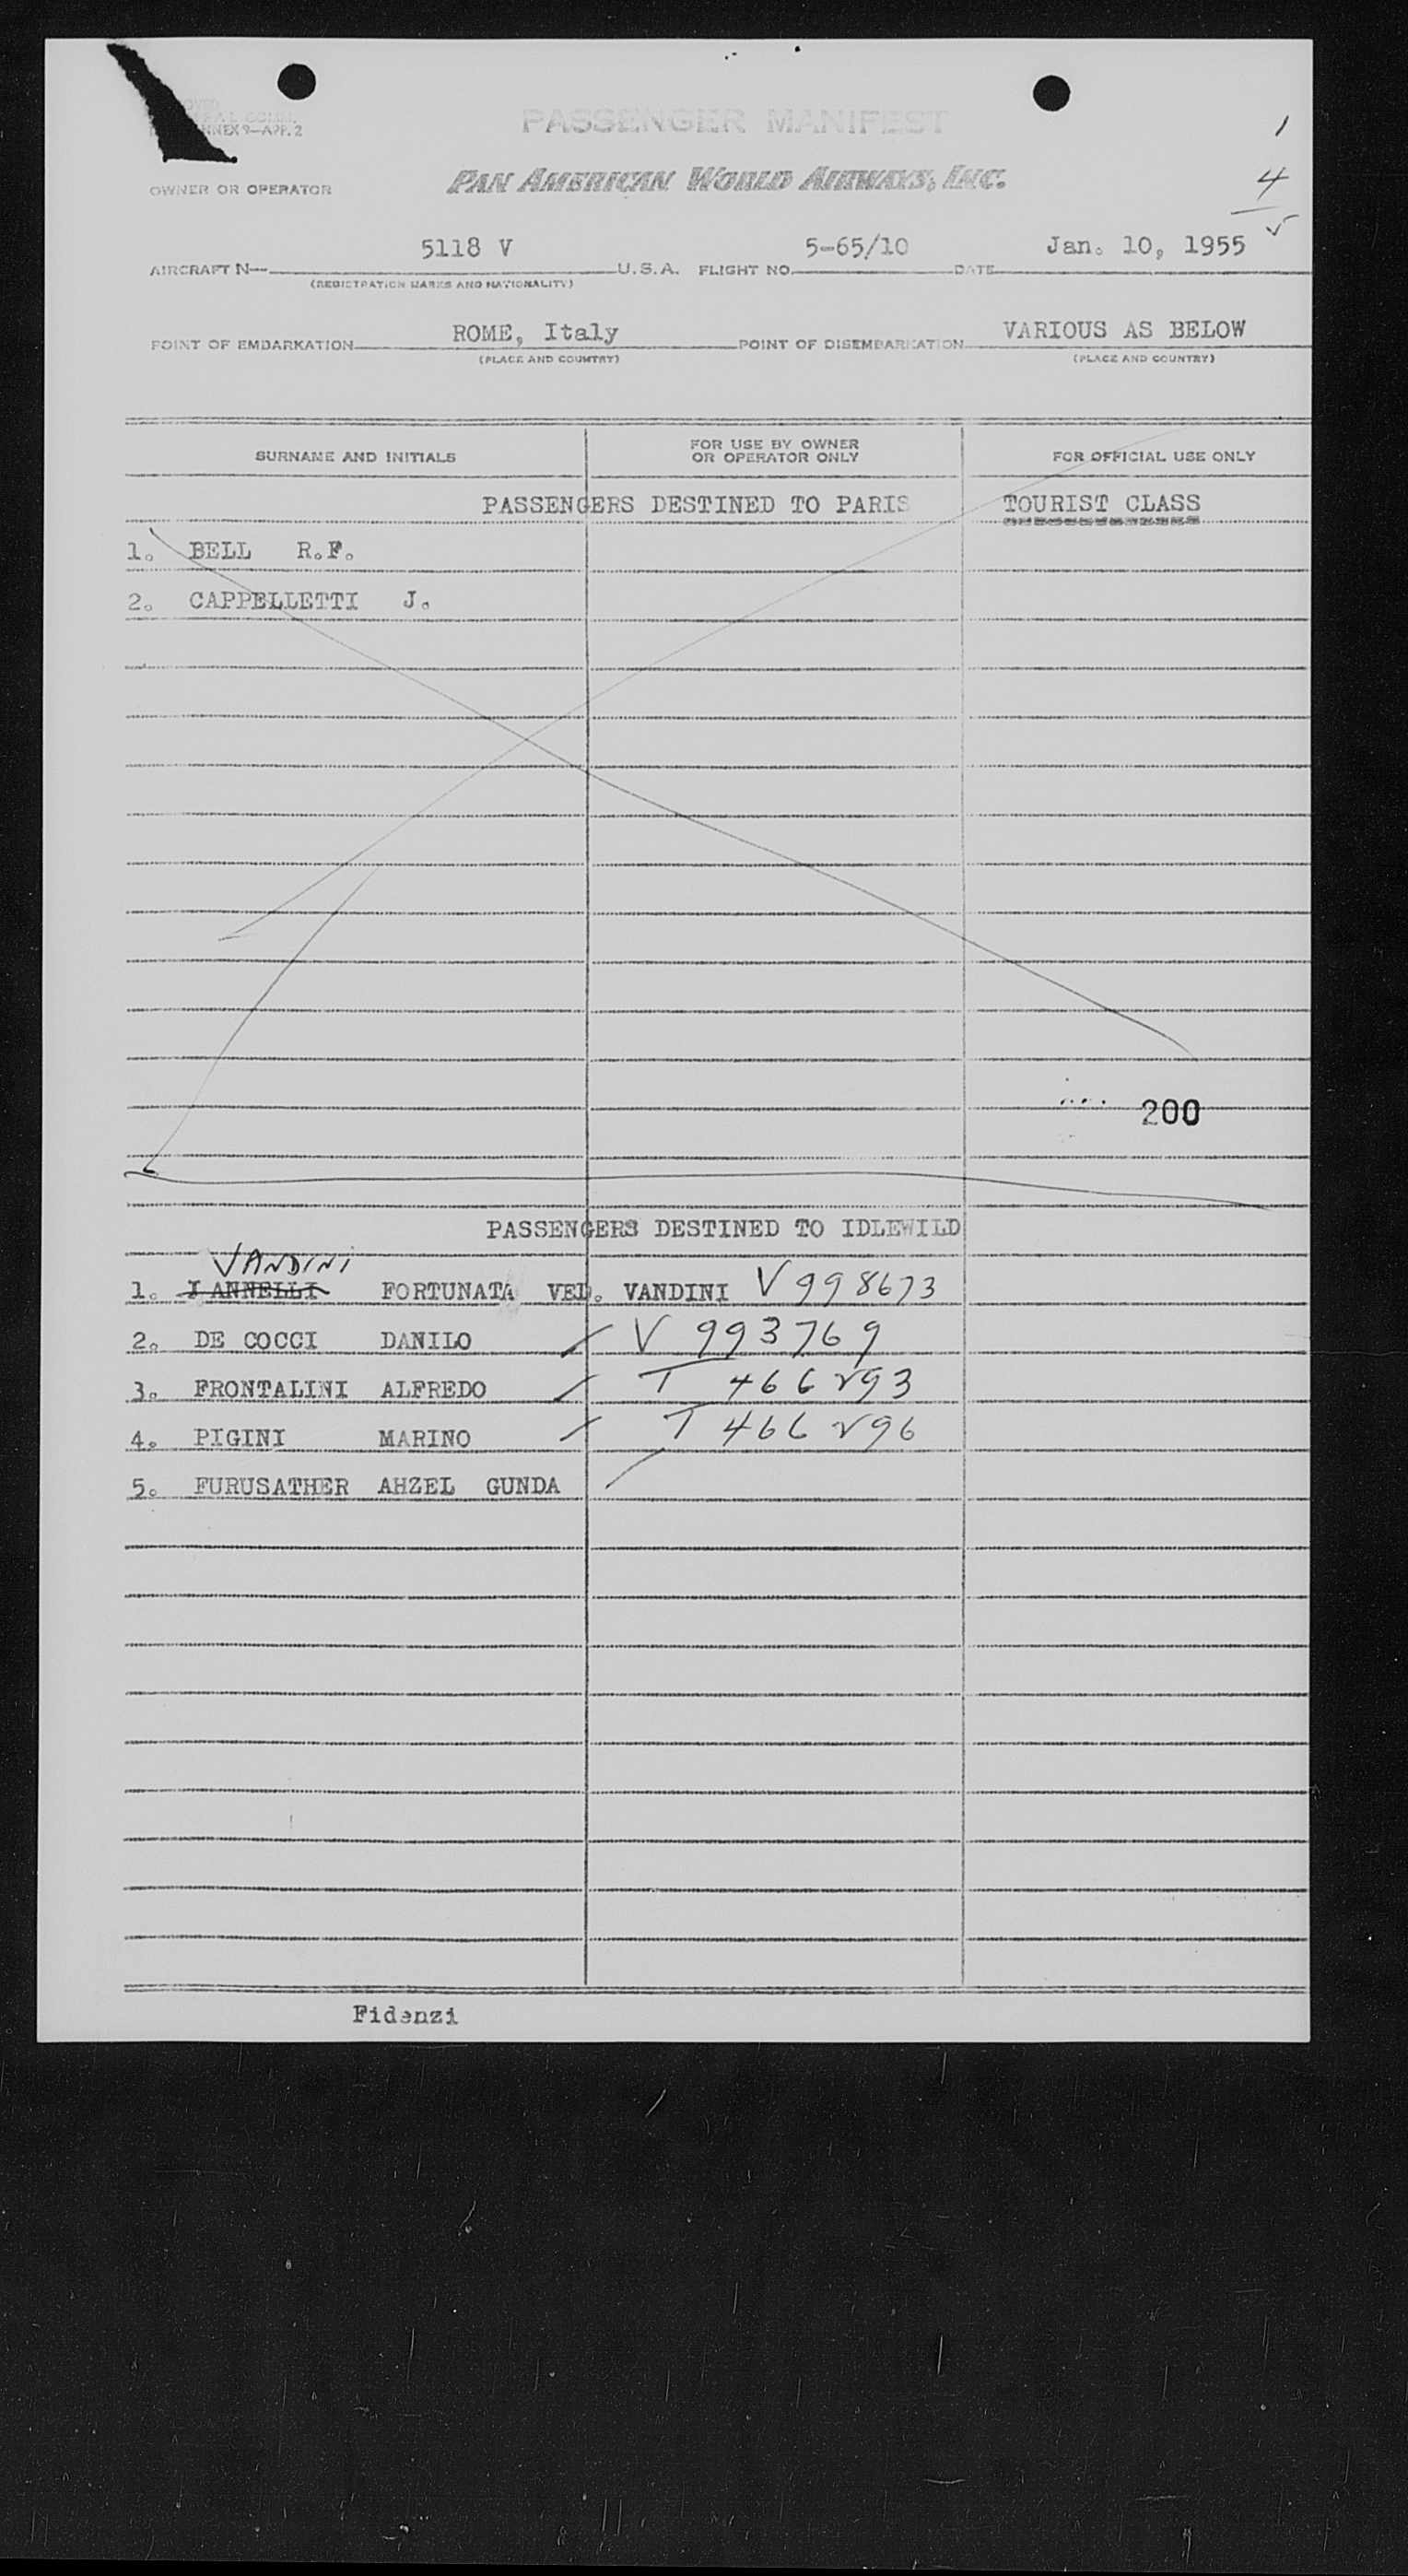 PASSENGER MANIFEST
NNEX 9-APP. 2
1
OWNER OR OPERATOR PAN AMERICAN WORLD AIRWAYS, INC. 4
5
AIRCRAFT N- 5118 V U.S.A. FLIGHT NO. 5-65/10 DATE Jan. 10, 1955
(REGISTRATION MARKS AND NATIONALITY)
POINT OF EMBARKATION ROME, Italy POINT OF DISEMBARKATION VARIOUS AS BELOW
(PLACE AND COUNTRY) (PLACE AND COUNTRY)
SURNAME AND INITIALS FOR USE BY OWNER OR OPERATOR ONLY FOR OFFICIAL USE ONLY
PASSENGERS DESTINED TO PARIS TOURIST CLASS
1. BELL R.F.
2. CAPPELLETTI J.
200
PASSENGERS DESTINED TO IDLEWILD
VANDINI
1. IANNELLI FORTUNATA VED. VANDINI V 998673
2. DE COCCI DANILO V 993769
3. FRONTALINI ALFREDO T 466293
4. PIGINI MARINO T 466296
5. FURUSATHER AHZEL GUNDA
Fidenzi